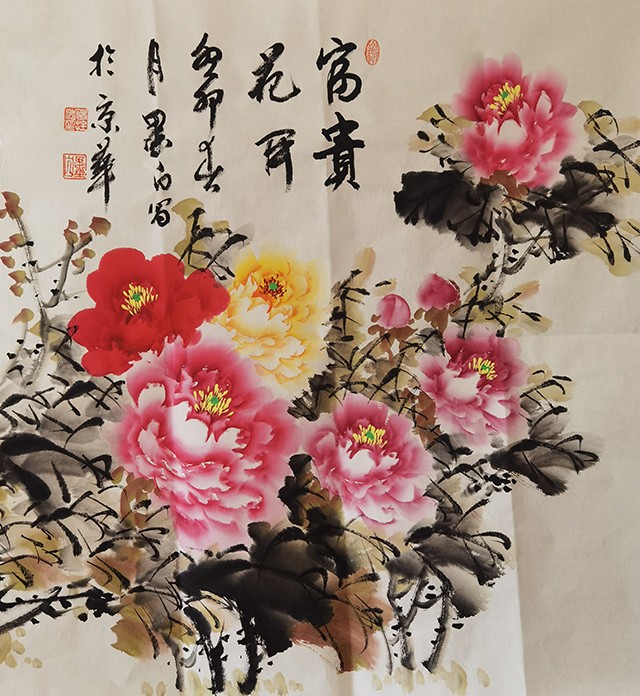 富貴
花開
癸卯春
月墨白寫
於京華